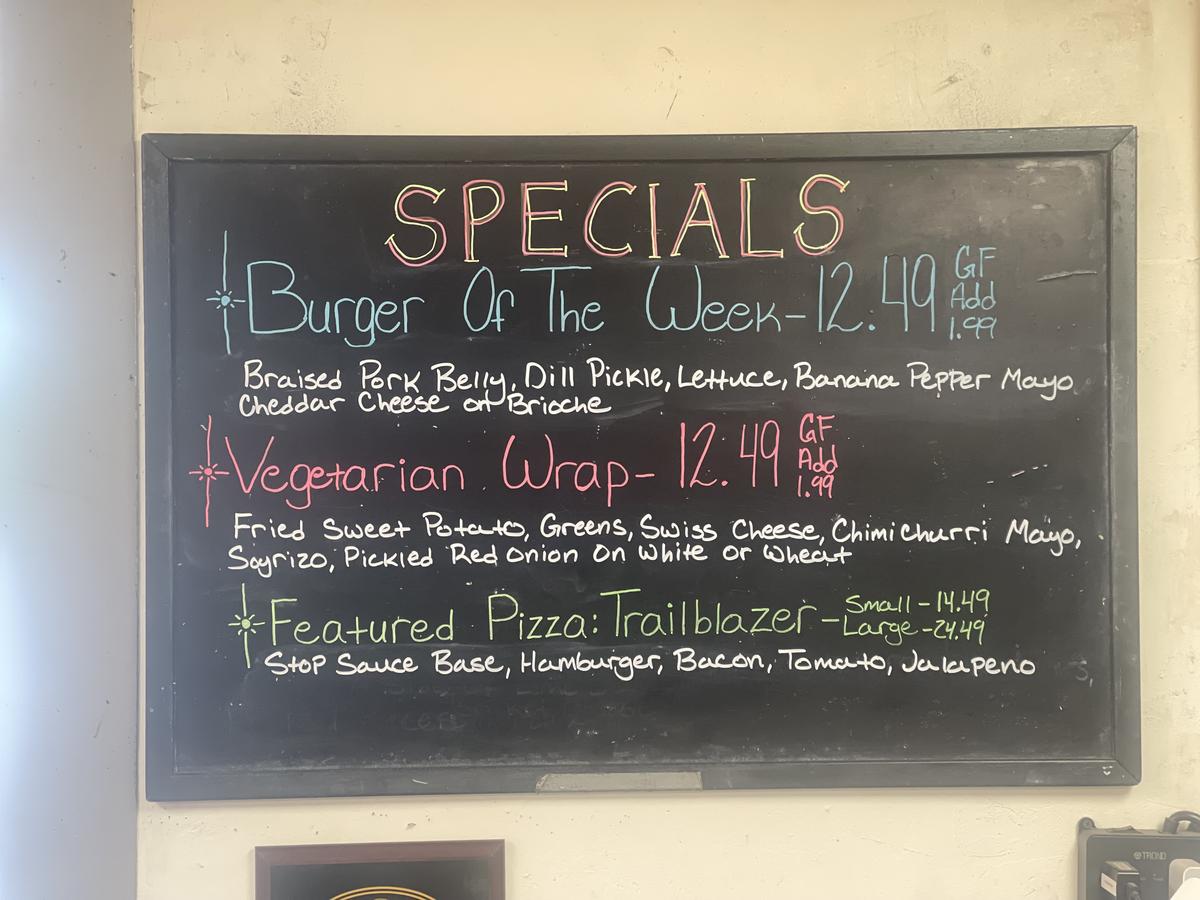 SPECIALS
Burger Of The Week-12.49 GF Add 1.99
Braised Pork Belly, Dill Pickle, Lettuce, Banana Pepper Mayo
Cheddar Cheese on Brioche
Vegetarian Wrap- 12.49 GF Add 1.99
Fried Sweet Potato, Greens, Swiss Cheese, Chimichurri Mayo,
Soyrizo, Pickled Red Onion On White or Wheat
Featured Pizza: Trailblazer - Small - 14.49
Large - 24.49
Stop Sauce Base, Hamburger, Bacon, Tomato, Jalapeno
TROND